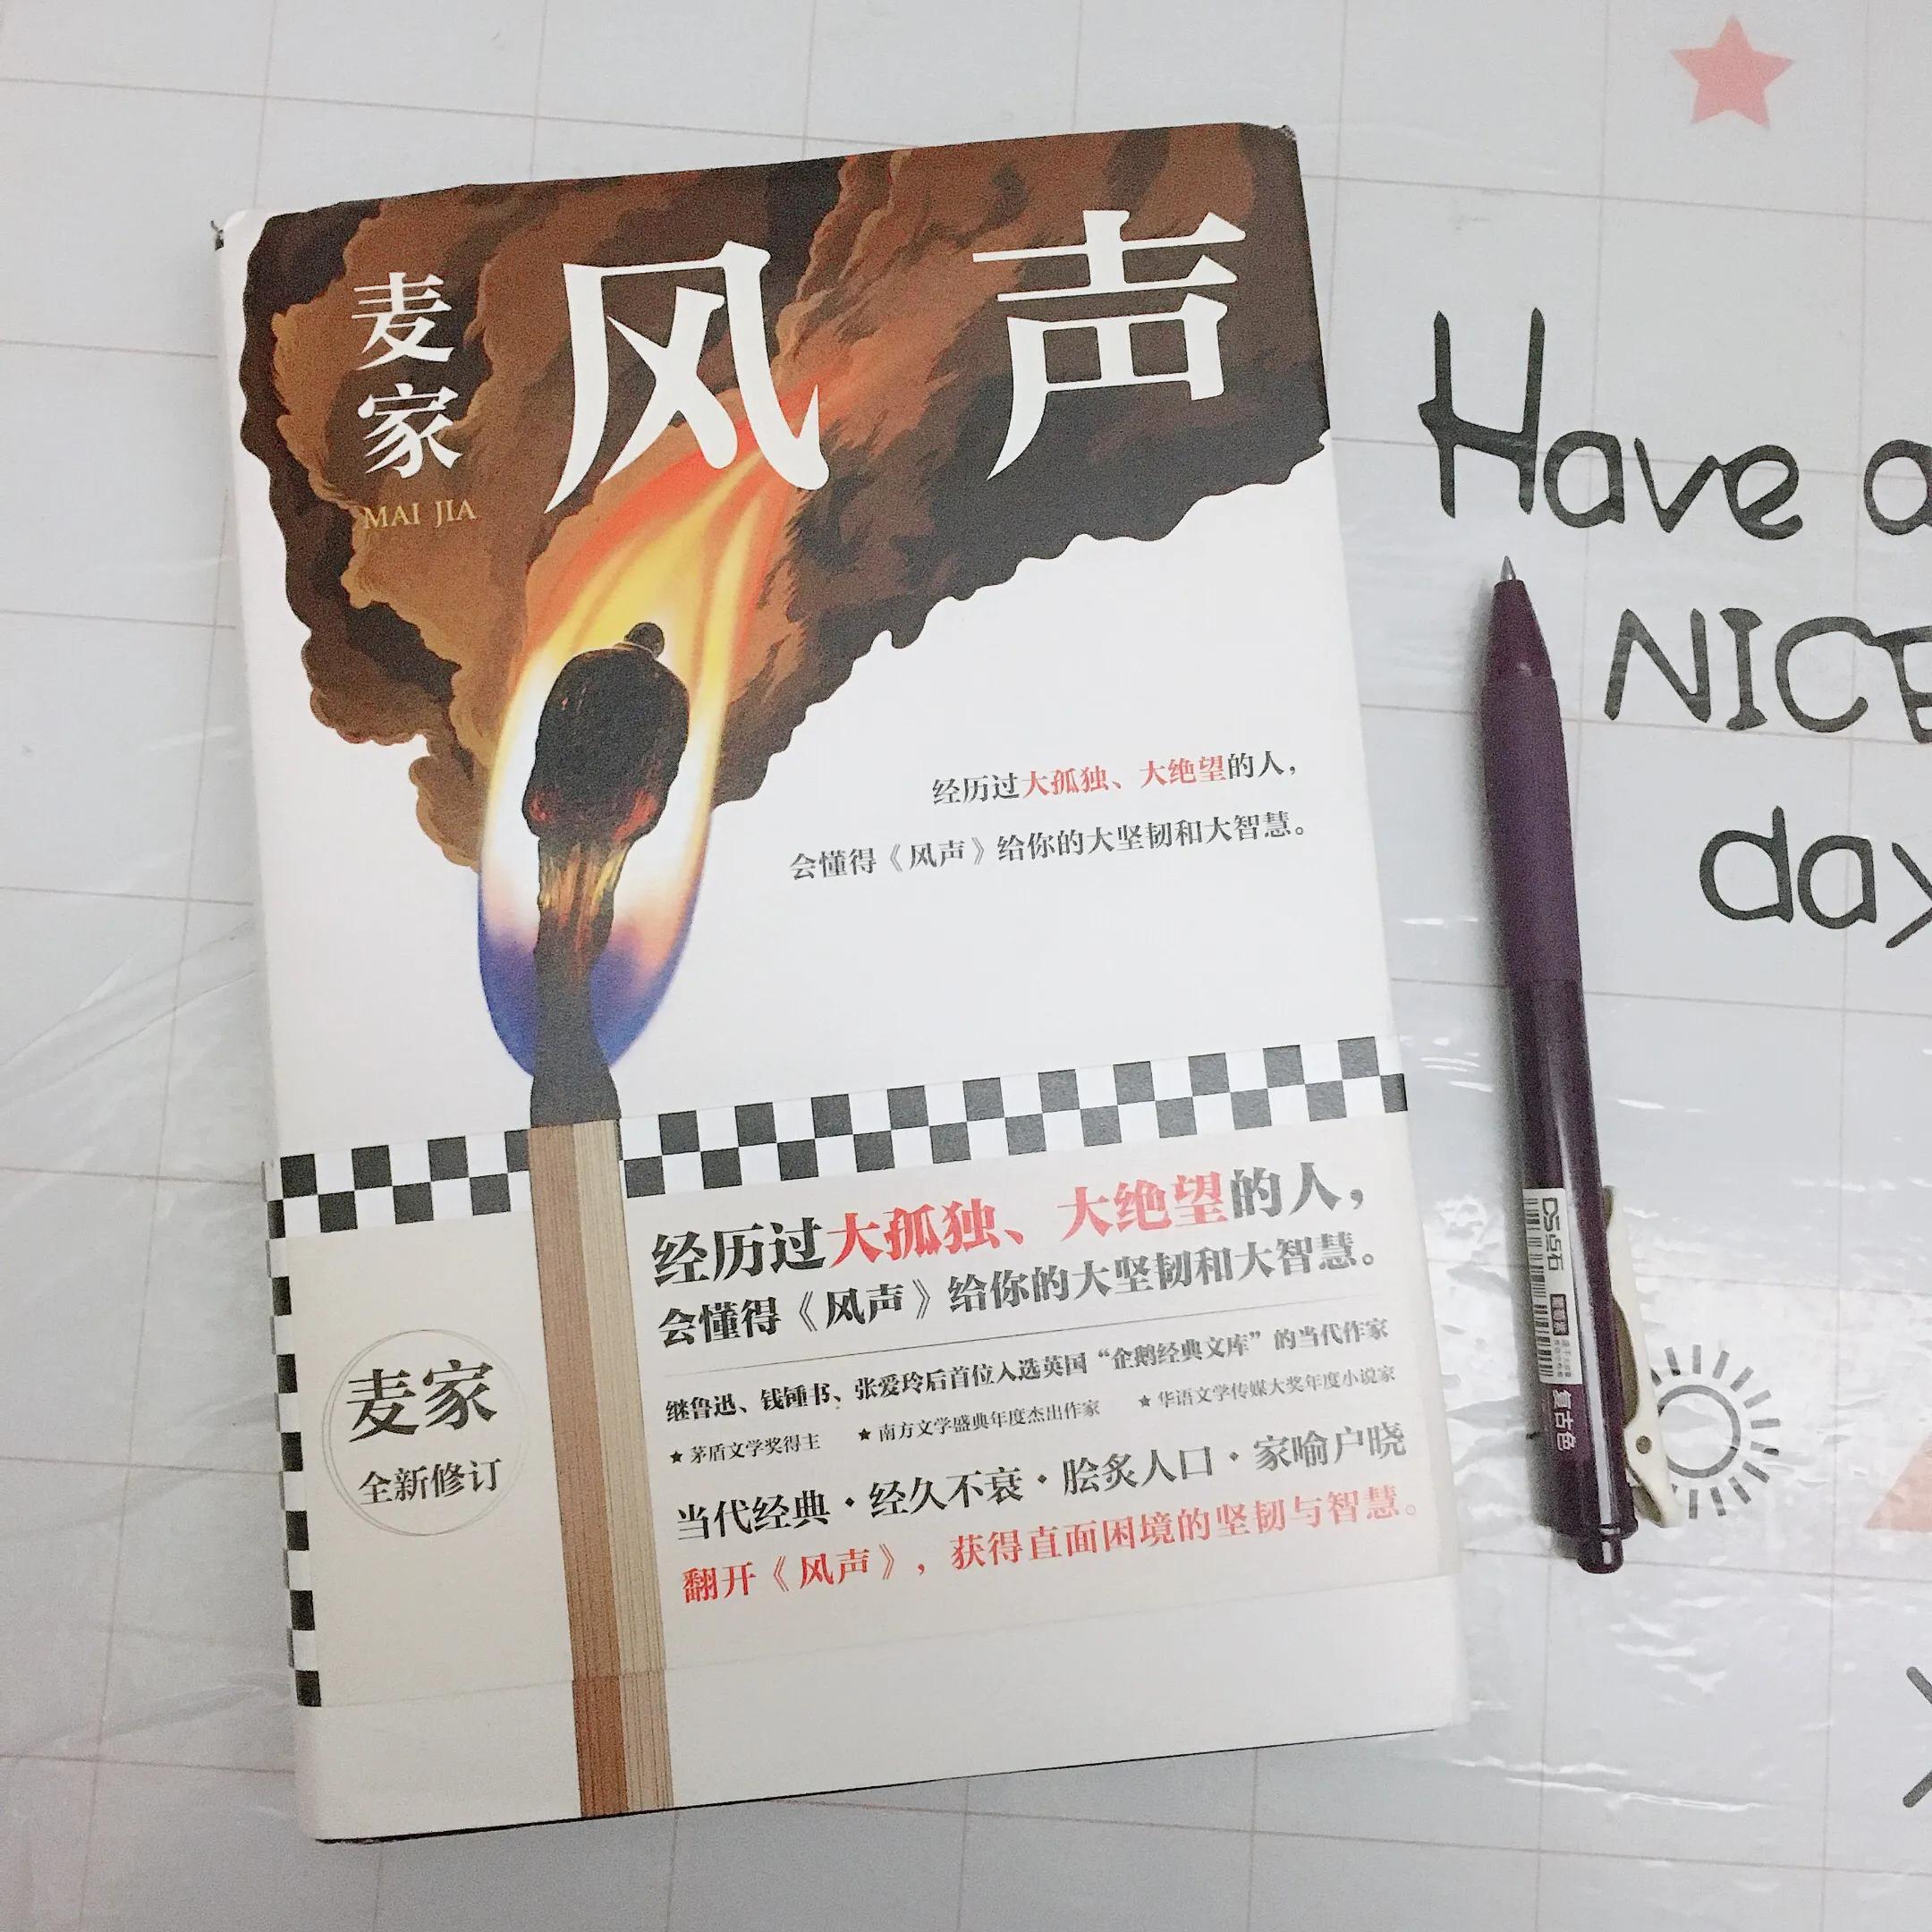 风声
麦家
MAI JIA
经历过大孤独、大绝望的人，
会懂得《风声》给你的大坚韧和大智慧。
经历过大孤独、大绝望的人，
会懂得《风声》给你的大坚韧和大智慧。
继鲁迅、钱锺书、张爱玲后首位入选英国“企鹅经典文库”的当代作家
★茅盾文学奖得主 ★南方文学盛典年度杰出作家 ★华语文学传媒大奖年度小说家
当代经典·经久不衰·脍炙人口·家喻户晓
翻开《风声》，获得直面困境的坚韧与智慧。
麦家
全新修订
Have a
NICE
day
复古色